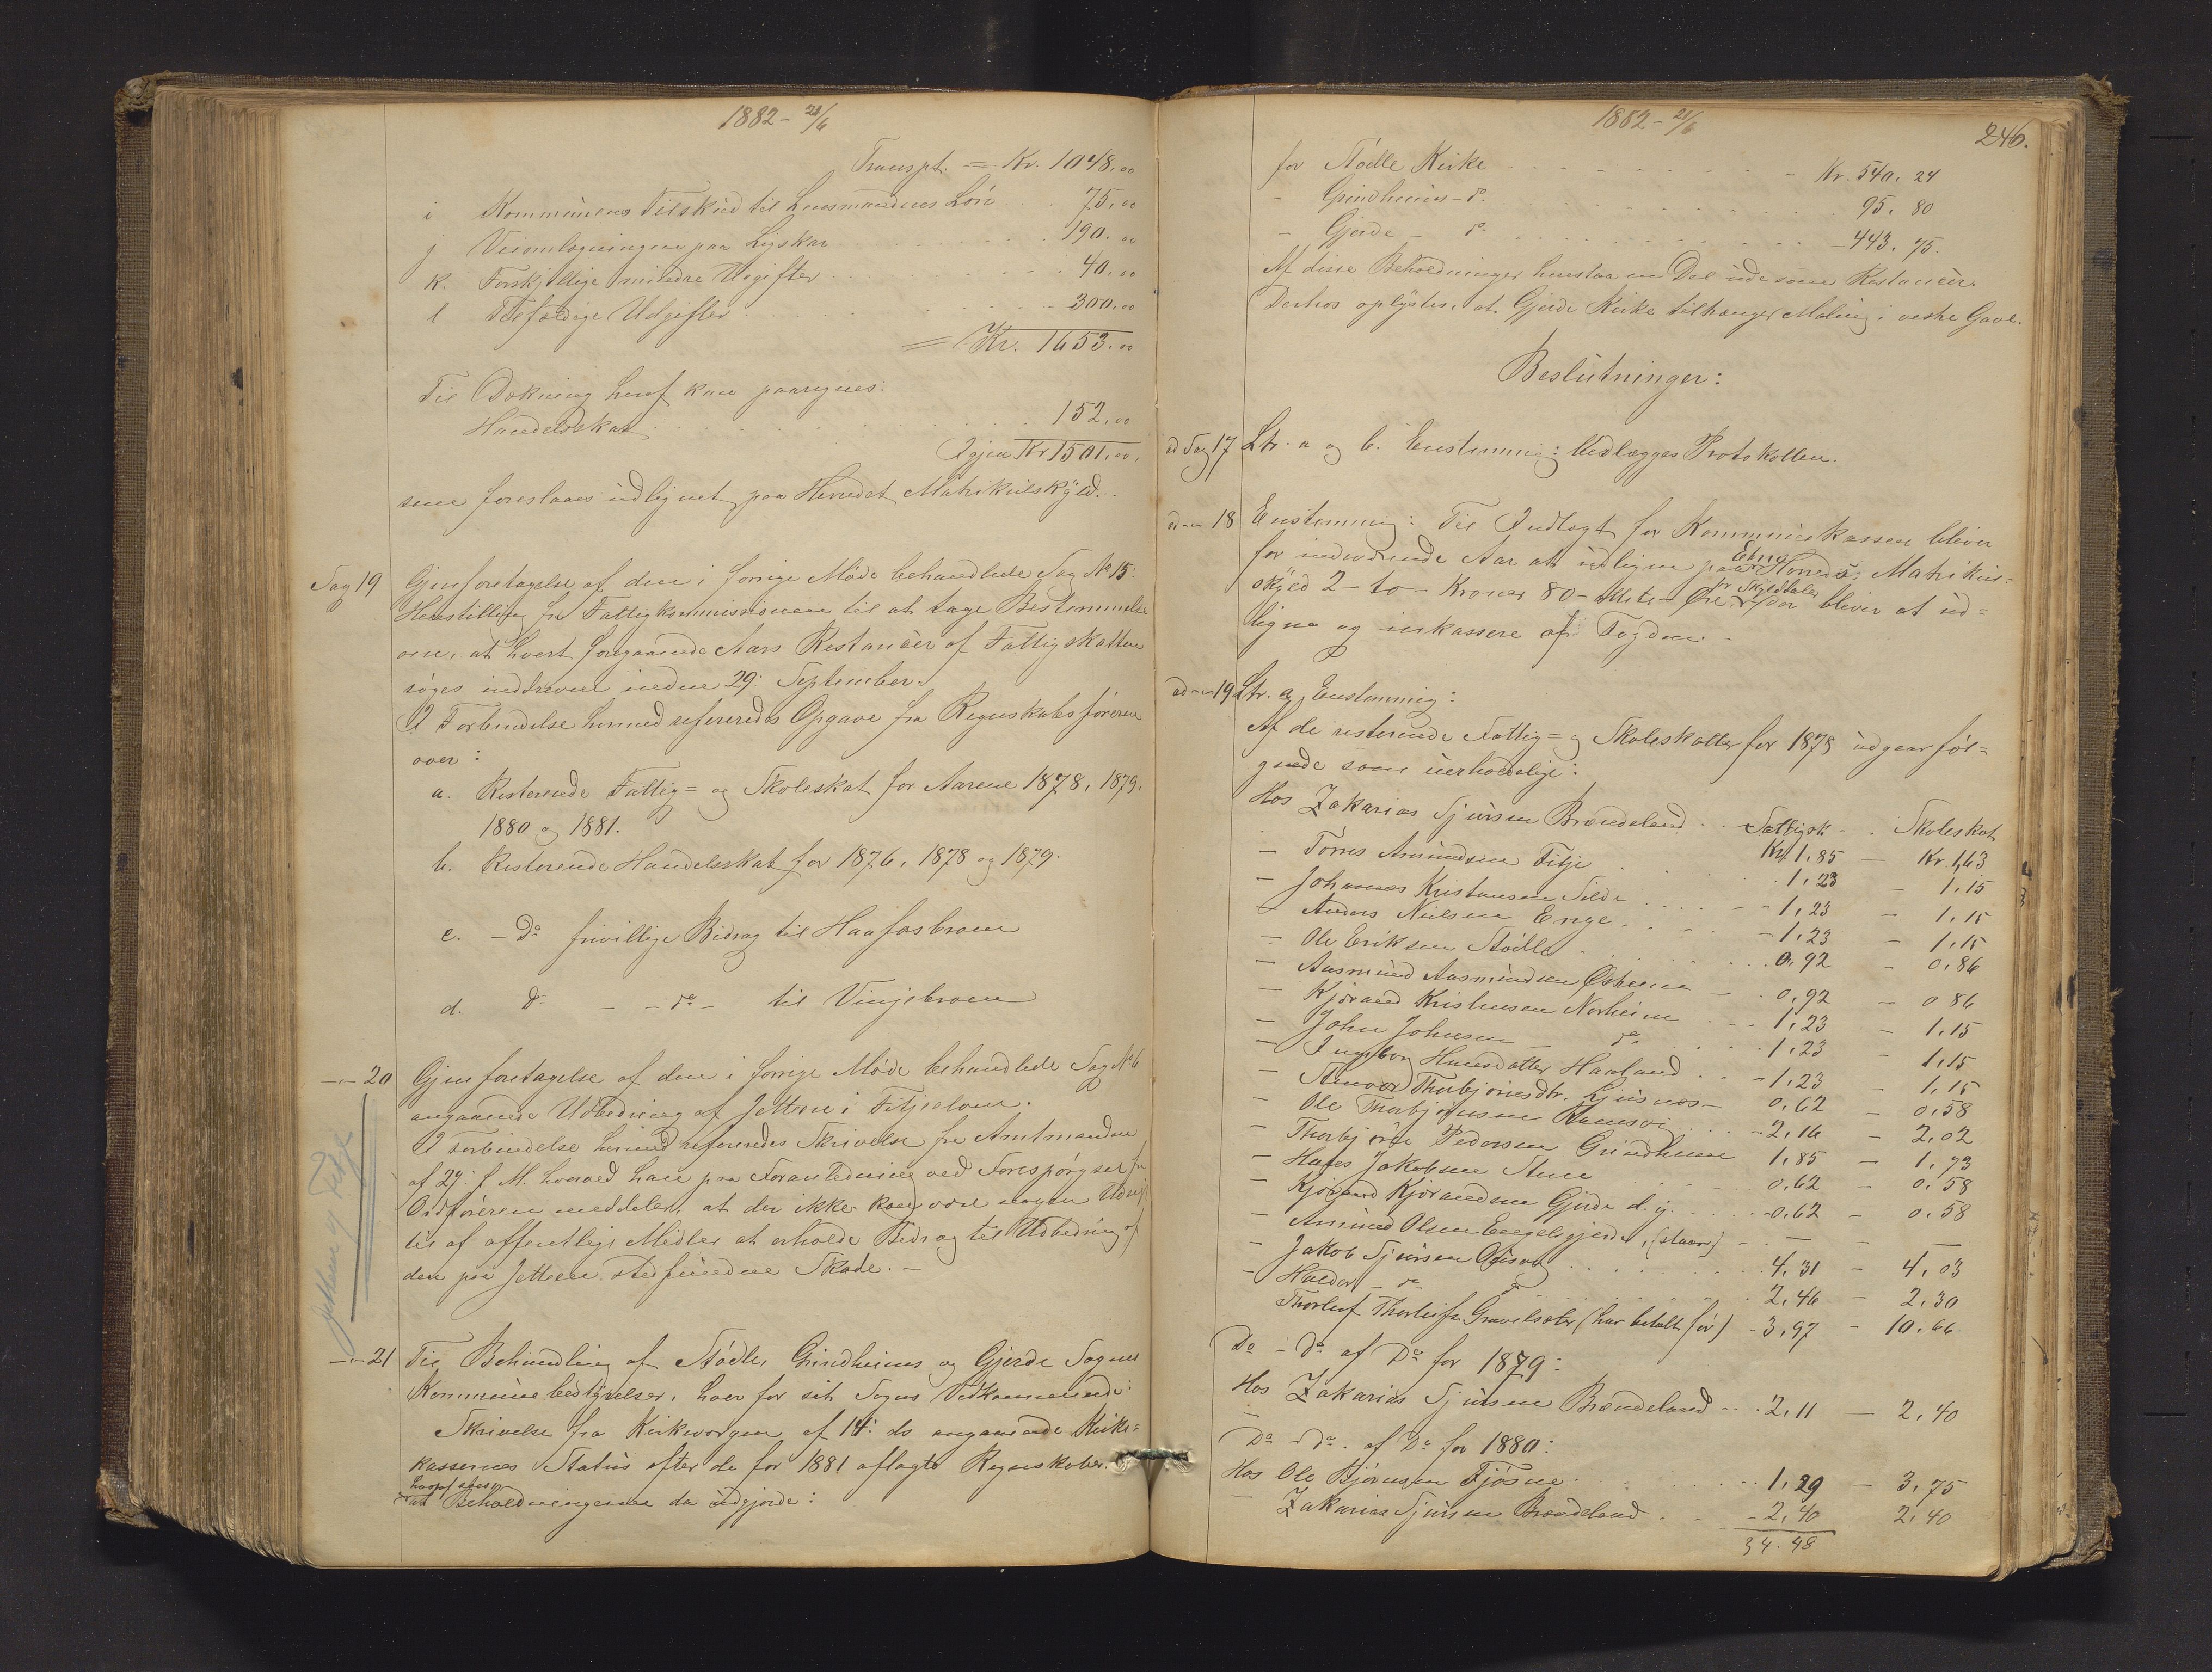 1882 - 21/6
Transpt. = Kr. 1048.00
i Kommunens Tilskud til Lensmandens Løn . . 75.00
j Veiomlægningen paa Lyskar . . . 190.00
k. Forskjellige mindre Udgifter . . . 40.00
l Tilfældige Udgifter . . . 300.00
= Kr. 1653.00
Til Dækning heraf kan paaregnes:
Handelsskat . . . 152.00
Igjen Kr 1501.00.
som foreslaaes udlignet paa Herredet Matrikulskyld.
Sag 19 Gjenforetagelse af den i forrige Møde behandlede Sag No 15:
Henstilling fra Fattigkommissionen til at tage Bestemmelse
om, at hvert foregaaende Aars Restancer af Fattigskatten
søges inddrevne inden 29. September.
I Forbindelse hermed refereredes Opgave fra Regnskabsføreren
over:
a. Resterende Fattig= og Skoleskat for Aarene 1878, 1879,
1880 og 1881.
b. Resterende Handelsskat for 1876, 1878 og 1879.
c. - Do frivillige Bidrag til Haafosbroen
d. Do - - do - til Vinjebroen
-"- 20 Gjenforetagelse af den i forrige Møde behandlede Sag No 6
angaaende Udbedring af Jettéen i Fitjeelven.
I Forbindelse hermed refereredes Skrivelse fra Amtmanden
af 27. f. M. hvorved han paa Foranledning ved Forespørgsel fra
Ordføreren meddeler, at der ikke kan være nogen Udsigt
til af offentlige Midler at erholde Bidrag til Udbedring af
den paa Jettéen stedfundne Skade. -
-"- 21 Til Behandling af Stødle, Grindheims og Gjerde Sogns
Kommunebestyrelser, hver for sit Sogns Vedkommende:
Skrivelse fra Kirkevergen af 14. ds angaaende Kirke=
kassernes Status efter de for 1881 aflagte Regnskaber.
hvoraf
at Beholdningerne da udgjorde:
1882 - 21/6
246.
for Stødle Kirke . . . Kr. 540. 24
- Grindheims - do . . . 95. 80
- Gjerde - do . . . - 443. 75.
Af disse Beholdninger henstaa en Del ude som Restancer.
Derhos oplystes, at Gjerde Kirke tiltrænger Maling i vestre Gavl.
Beslutninger:
ad Sag 17 Ltr. a og b. Enstemmig: Vedlægges Protokollen.
ad -"- 18 Enstemmig: Til Indtægt for Kommunekassen bliver
for indeværende Aar at udligne paa Etne Herreds Matrikul=
skyld 2 - to - Kroner 80 - otteti - Øre pr Skylddaler, der bliver at ud=
ligne og inkassere af Fogden. -
ad -"- 19 Ltr. a, Enstemmig:
Af de resterende Fattig= og Skoleskatter for 1878 udgaar føl=
gende som uerholdelige:
Fattigsk. . Skoleskat
Hos Zakarias Sjursen Brændeland . . Kr. 1.85 - Kr. 1,63
- Tørres Amundsen Fitje . . . 1.23 - 1.15
- Johannes Kristensen Silde . . . - 1.23 - 1.15
- Anders Nielsen Enge . . . - 1.23 - 1.15
- Ole Eriksen Stødle . . . 0.92 - 0.86
- Aasmund Aasmundsen Østreim - . 0.92 - 0 86
- Kjørand Kristensen Norheim . . - 1.23 - 1.15
- John Johnsen do . . . 1.23 - 1.15
- Ingeborg Hansdatter Haaland . . - 1.23 - 1.15
- Thorbjørnsdtr. Ljusnæs - 0.62 - 0.58
- Ole Thorbjørnsen Ramsvig . . - 2.16 - 2.02
- Thorbjørn Pedersen Grindheim 1.85 - 1.73
- Hans Jakobsen Stene . . . 0.62 - 0.58
- Kjørand Kjørandsen Gjerde d. y. . . - 0.62 - 0.58
- Amund Olsen Engelsgjerde, (staar) - - -
- Jakob Sjursen . . . 4.31 - 4.03
- Haldor - do do . . . 2.46 - 2.30
Thorleif Thorleifs. Gravelsæter (har betalt før) - 3.97 - 10.66
Do - do af Do for 1879:
Hos Zakarias Sjursen Brændeland . . . 2.11 - 2.40
Do - do . af Do for 1880:
Hos Ole Bjørnsen Fjøsne . . . 1.29 - 3.75
- Zakarias Sjursen Brændeland . - 2.40 2.40
34.48